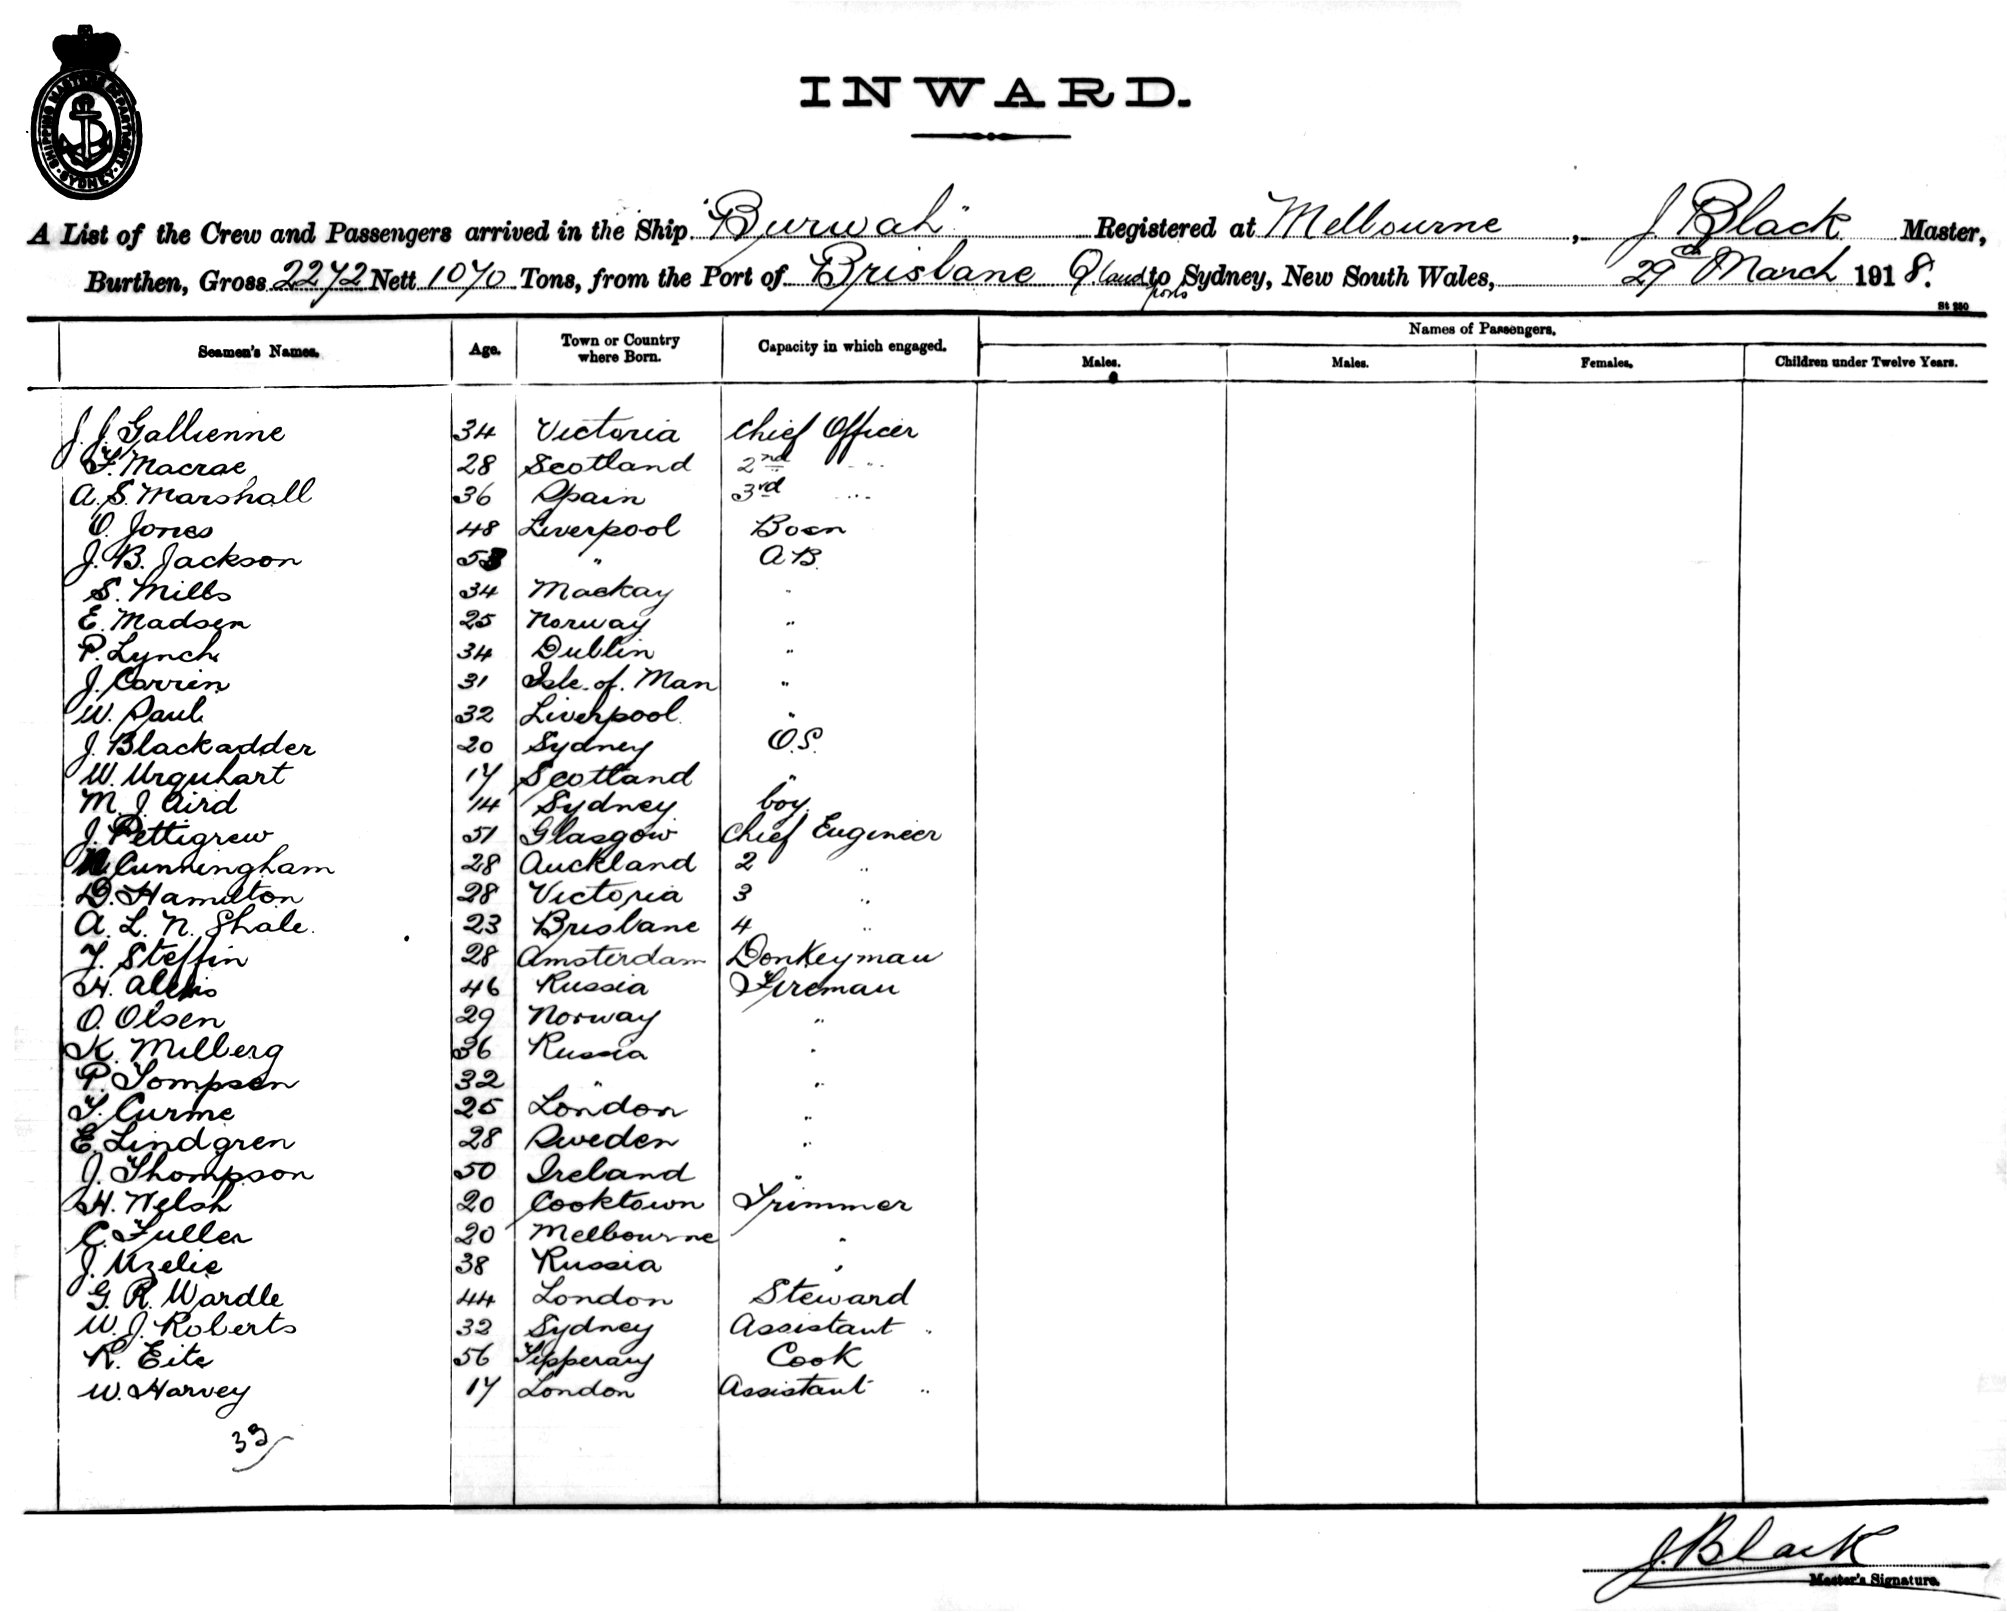 SHIPPING MASTERS DEPARTMENT
SYDNEY
INWARD.
A List of the Crew and Passengers arrived in the Ship "Burwah" Registered at Melbourne, J. Black Master,
Burthen, Gross 2272 Nett 1070 Tons, from the Port of Brisbane Q.land ports to Sydney, New South Wales, 29th March 1918.
St 250
Seamen's Names. Age. Town or Country where Born. Capacity in which engaged. Names of Passengers.
Males. Males. Females. Children under Twelve Years.
J. J. Gallienne 34 Victoria Chief Officer
F. Macrae 28 Scotland 2nd "
A. S. Marshall 36 Spain 3rd "
O. Jones 48 Liverpool Bosn
J. B. Jackson 53 " A B.
S. Mills 34 Mackay "
E. Madsen 25 Norway "
P. Lynch 34 Dublin "
J. Corrin 31 Isle of Man "
W. Paul 32 Liverpool "
J. Blackadder 20 Sydney O.S.
W. Urquhart 17 Scotland "
M. J. Aird 14 Sydney boy
J. Pettigrew 51 Glasgow Chief Engineer
Cunningham 28 Auckland 2 "
D. Hamilton 28 Victoria 3 "
A. L. N. Shale. 23 Brisbane 4 "
J. Steffin 28 Amsterdam Donkeyman
H. 46 Russia Fireman
O. Olsen 29 Norway "
K. Milberg 36 Russia "
P. Tompsen 32 " "
T. Curme 25 London "
E. Lindgren 28 Sweden "
J. Thompson 50 Ireland "
H. Welsh 20 Cooktown Trimmer
C. Fuller 20 Melbourne "
J. Uzelie 38 Russia "
G. R. Wardle 44 London Steward
W. J. Roberts 32 Sydney Assistant "
R. Eite 56 Tipperary Cook
W. Harvey 17 London Assistant "
33
J. Black
Master's Signature.